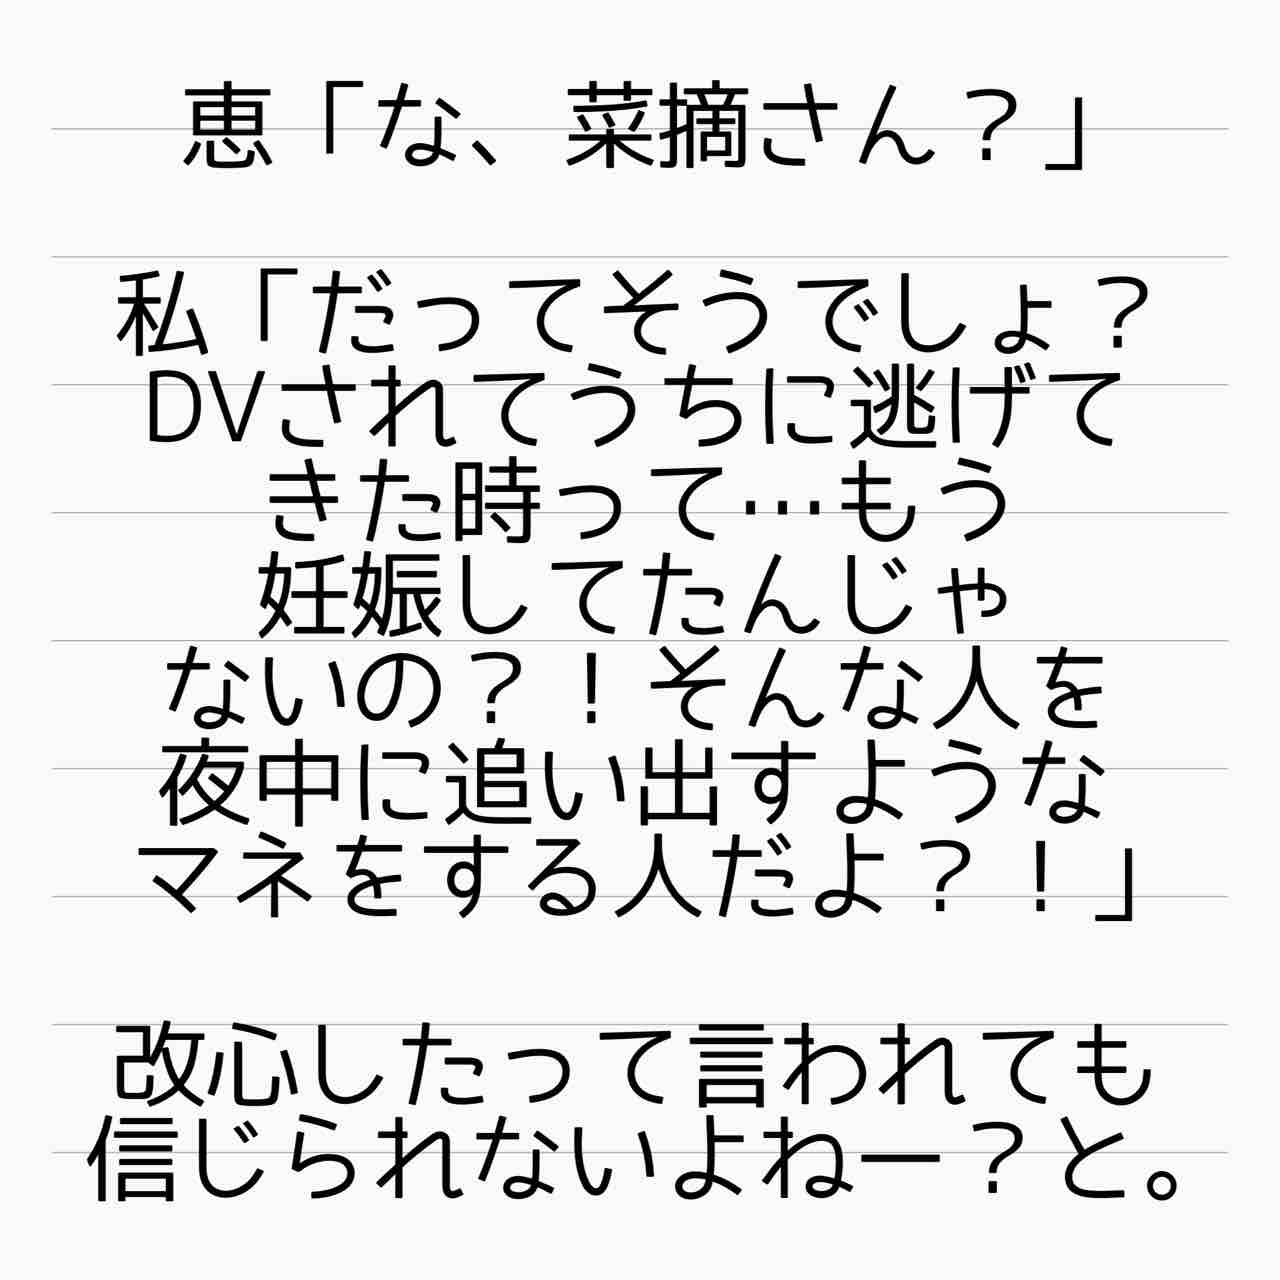 恵「な、菜摘さん？」
私「だってそうでしょ？
DVされてうちに逃げて
きた時って…もう
妊娠してたんじゃ
ないの？！そんな人を
夜中に追い出すような
マネをする人だよ？！」
改心したって言われても
信じられないよねー？と。